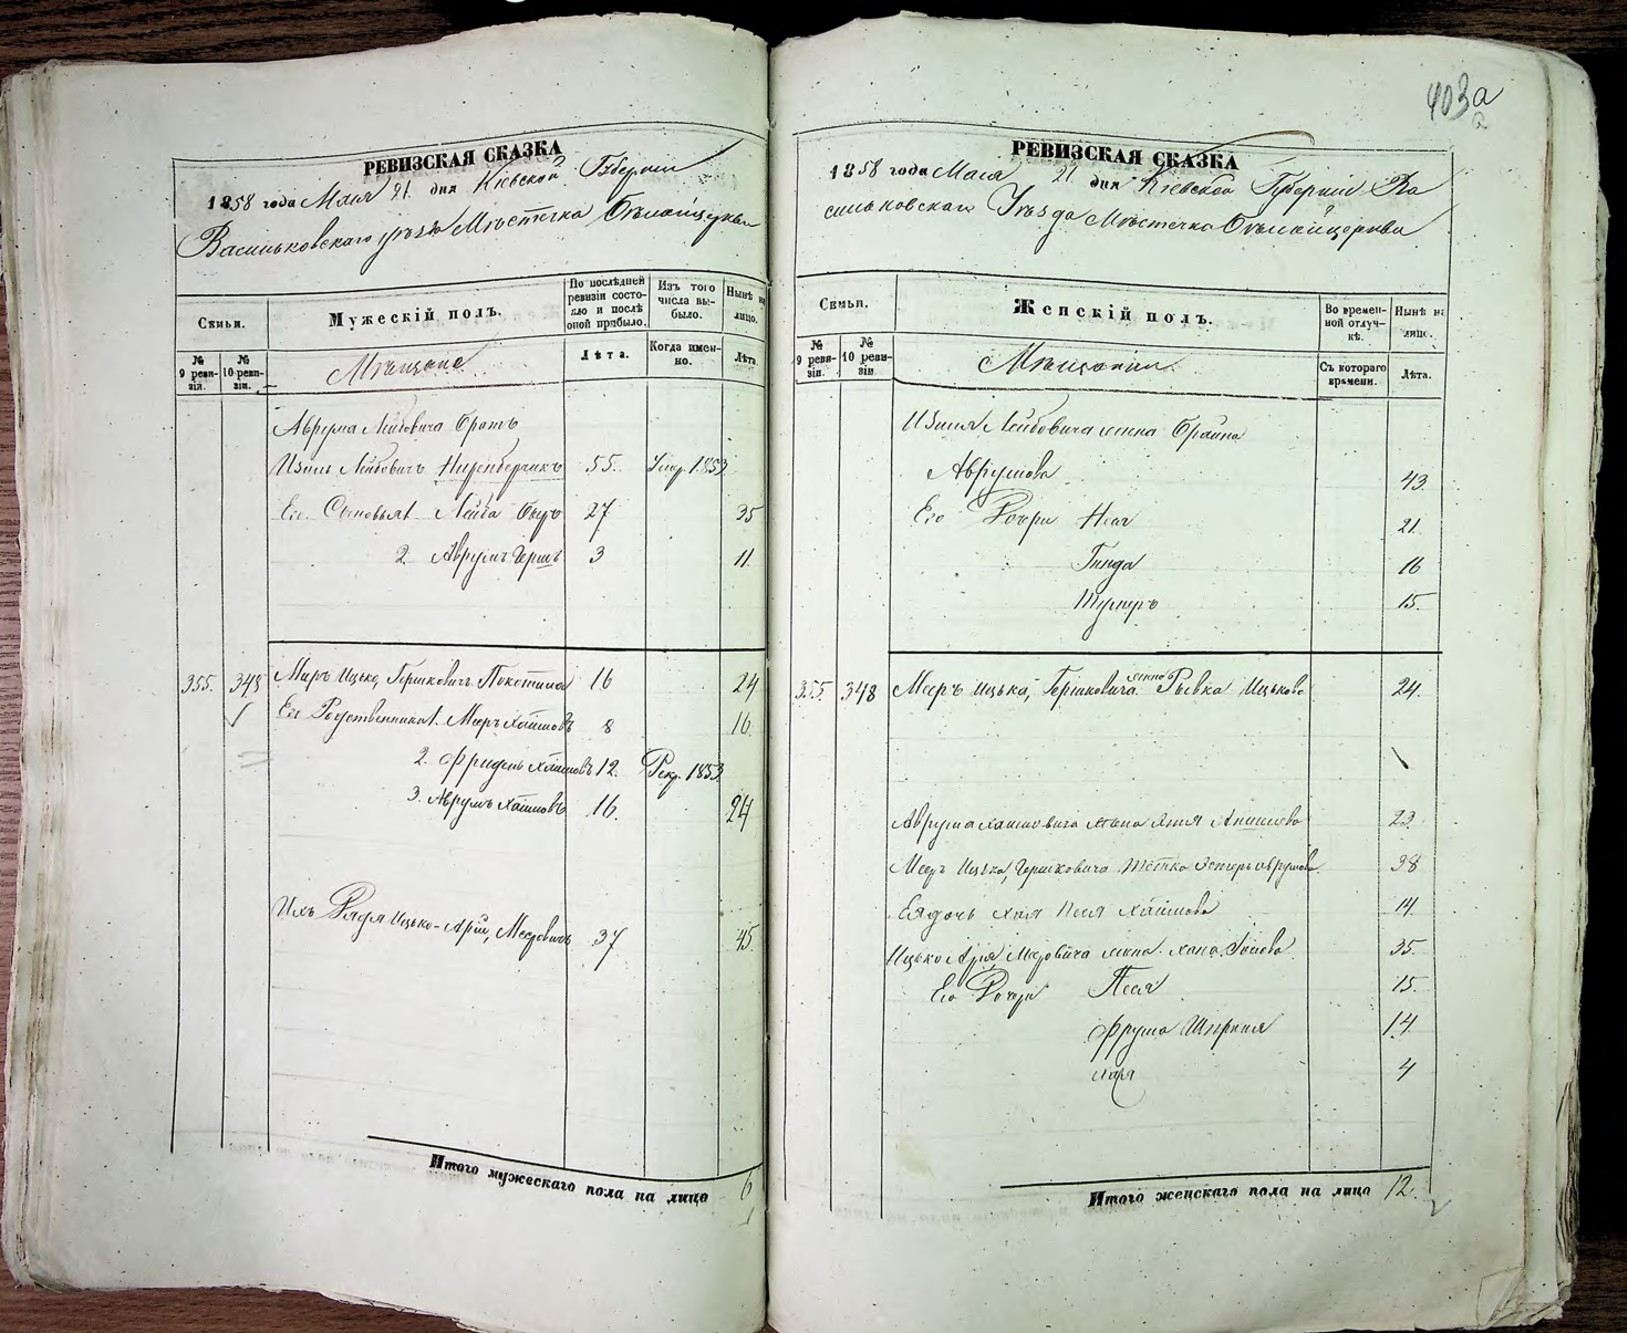 403а
РЕВИЗСКАЯ СКАЗКА
1858 года Маия 21. дня Кіевской Губерніи
Василькъовскаго уѣзда Мѣстечка Бѣлойцеркви
Семьи.
Мужескій полъ.
По послѣдней ревизіи состояло и послѣ оной прибыло.
Изъ того числа выбыло.
Нынѣ на лицо.
№ 9 ревизіи.
№ 10 ревизіи.
Мѣщане
Лѣта.
Когда именно.
Лѣта
Аврума Лейбовича братъ
Изиль Лейбовичъ Ниренберчикъ 55. Умр. 1853
Его Сыновья 1. Лейба 27 35
2. Аврумъ Гершъ 3 11.
355. 348 Меръ Ицько, Гершковичъ Покотило 16 24
Его Родственники 1. Мееръ Хаимовъ 8 16.
2. Фридель Хаимовъ 12. Рекр. 1853
3. Аврумъ Хаимовъ 16. 24
Ихъ Дядя Ицько-Арій, Мееровичъ 37 45.
Итого мужескаго пола на лицо 6
РЕВИЗСКАЯ СКАЗКА
1858 года Маия 21 дня Кіевской Губерніи Ва
сильковскаго Уѣзда Мѣстечка Бѣлойцеркви
Семьи.
Женскій полъ.
Во временной отлучкѣ.
Нынѣ на лицо.
№ 9 ревизіи.
№ 10 ревизіи
Мѣщанки
Съ котораго времени.
Лѣта.
Изиля Лейбовича жена Брайна
Аврумова 43.
Его Дочери Неся 21.
Гинда 16
15.
355. 348 Мееръ Ицька, Гершковича жена Рывка Ицькова 24.
Аврума Хаимовича жена 23.
Меер Ицька, Гершковича тётка Эстеръ Аврумова 38
Ея дочь Хая Песя Хаимова 14.
Ицько Арія Меровича жена Хана 35.
Его Дочери Песя 15.
Фрума Шпринця 14
4
Итого женскаго пола на лицо 12.